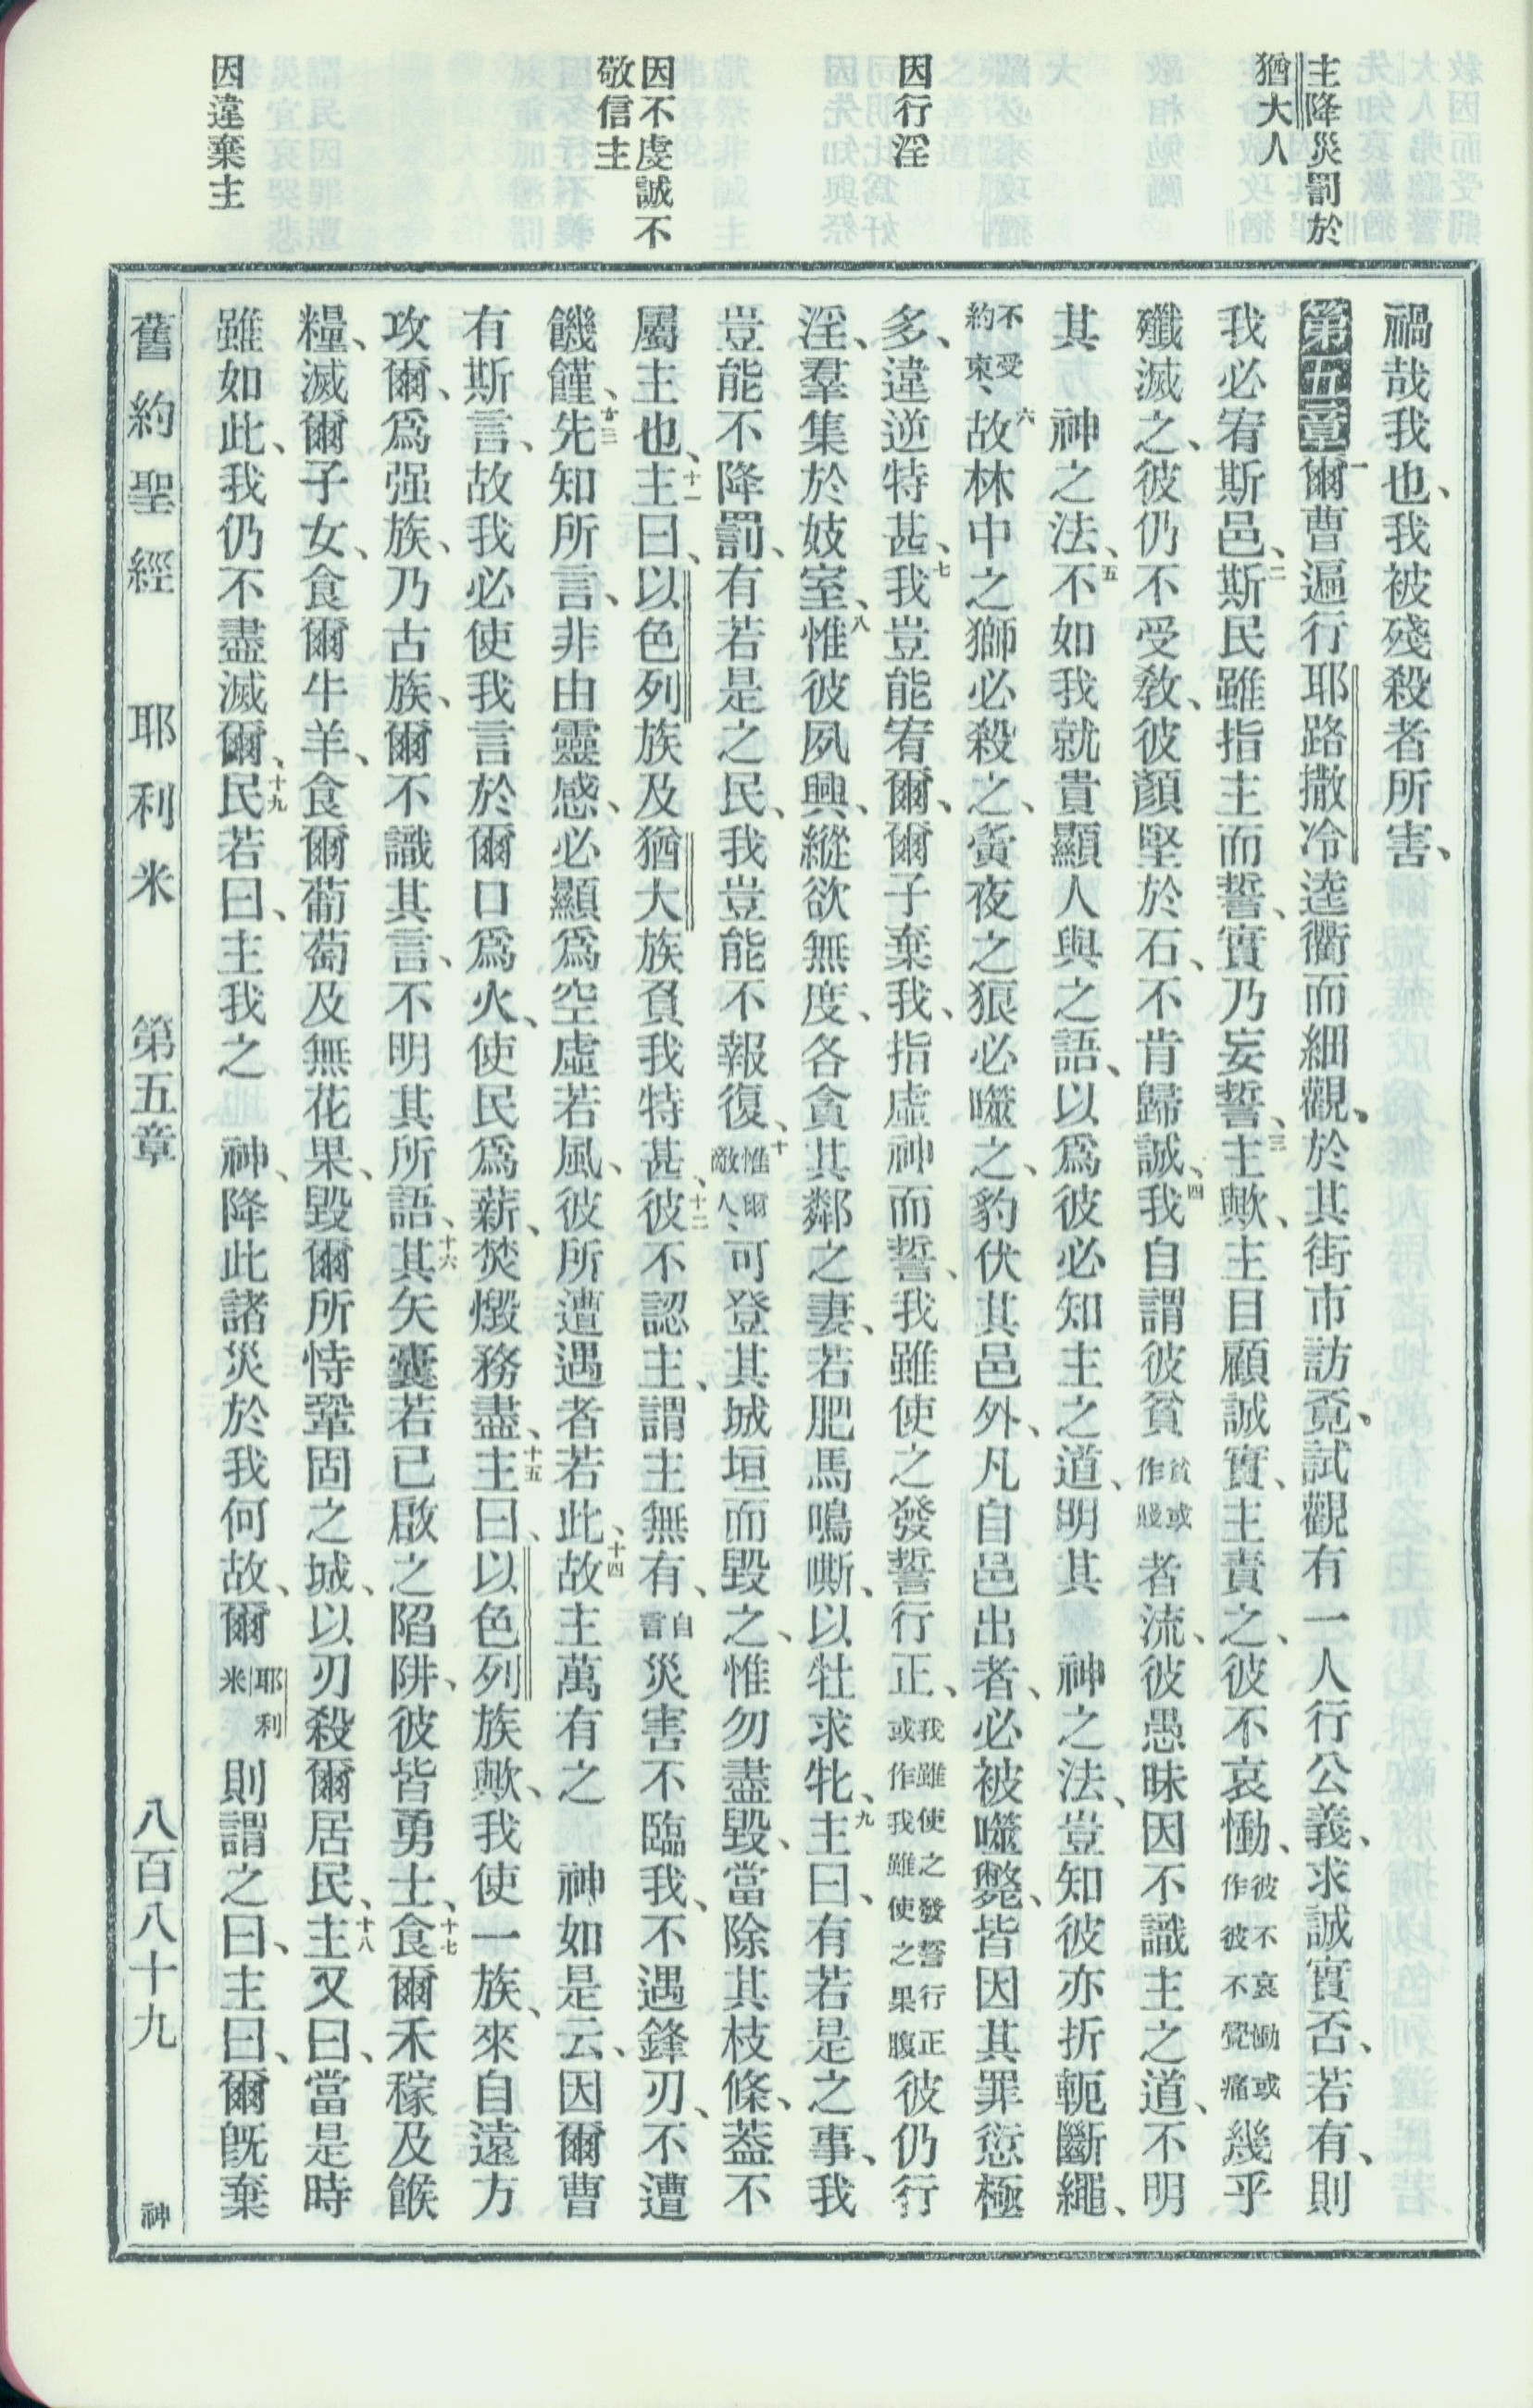 主降災罰於
猶大人
因行淫
因不虔誠不
敬信主
因違棄主
禍哉我也、我被殘殺者所害、
第五章一爾曹遍行耶路撒冷逵衢而細觀、於其街市訪覓、試觀有一人行公義、求誠實否、若有、則
我必宥斯邑、二斯民雖指主而誓、實乃妄誓、三主歟、主目顧誠實、主責之、彼不哀慟、彼不哀慟或作彼不覺痛幾乎
殲滅之、彼仍不受敎、彼顏堅於石、不肯歸誠、四我自謂彼貧貧或作賤者流、彼愚昧因不識主之道、不明
其　神之法、五不如我就貴顯人與之語、以爲彼必知主之道、明其　神之法、豈知彼亦折軛斷繩、
不受約束、六故林中之獅必殺之、黃夜之狼必噬之、豹伏其邑外、凡自邑出者、必被噬斃、皆因其罪愆極
多、違逆特甚、七我豈能宥爾、爾子棄我、指虛神而誓、我雖使之發誓行正、我雖使之發誓行正或作我雖使之果腹彼仍行
淫、羣集於妓室、八惟彼夙興、縱欲無度、各貪其鄰之妻、若肥馬鳴嘶、以牡求牝、九主曰、有若是之事、我
豈能不降罰、有若是之民、我豈能不報復、十惟爾敵人、可登其城垣而毀之、惟勿盡毀、當除其枝條、葢不
屬主也、十一主曰、以色列族及猶大族負我特甚、十二彼不認主、謂主無有、自言災害不臨我、不遇鋒刃、不遭
饑饉、十三先知所言、非由靈感、必顯爲空虛若風、彼所遭遇者若此、十四故主萬有之　神如是云、因爾曹
有斯言、故我必使我言於爾口爲火、使民爲薪、焚燬務盡、十五主曰、以色列族歟、我使一族、來自遠方
攻爾、爲强族、乃古族、爾不識其言、不明其所語、十六其矢囊若已啟之陷阱、彼皆勇士、十七食爾禾稼及餱
糧、滅爾子女、食爾牛羊、食爾葡萄及無花果、毀爾所恃鞏固之城、以刃殺爾居民、十八主又曰、當是時
雖如此、我仍不盡滅爾、十九民若曰、主我之　神、降此諸災於我何故、爾耶利米則謂之曰、主曰、爾旣棄
舊約聖經　耶利米　第五章　八百八十九　神